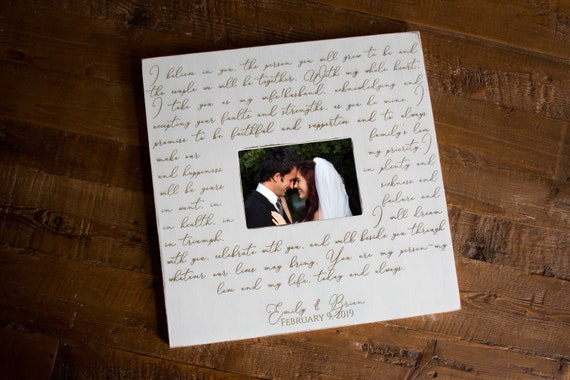 I believe in you, the person you will grow to be and
the couple we will be together. With my whole heart,
I take you as my wife/husband, acknowledging and
accepting your faults and strengths, as you do mine. I
promise to be faithful and supportive and to always
make our family's love
and happiness my priority. I
will be yours in plenty and
in want, in sickness and
in health, in failure and
in triumph. I will dream
with you, celebrate with you, and walk beside you through
whatever our lives may bring. You are my person-my
love and my life, today and always.
Emily & Brian
FEBRUARY 9, 2019